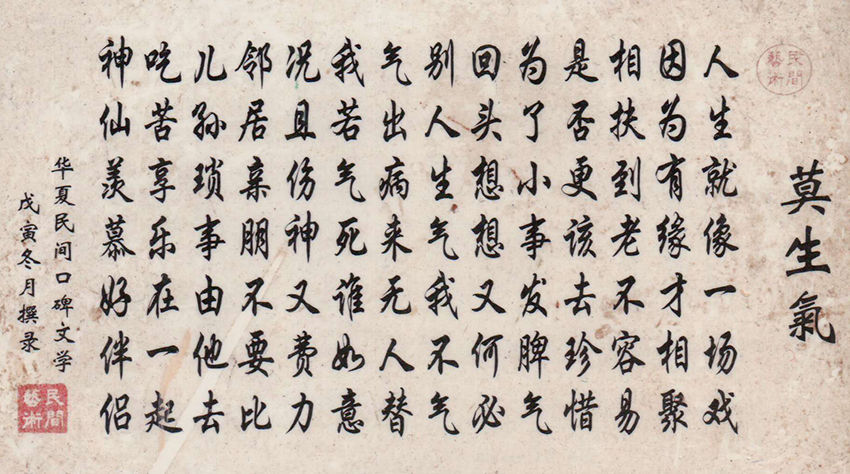 民間
藝術
莫生氣
人生就像一场戏
因为有缘才相聚
相扶到老不容易
是否更该去珍惜
为了小事发脾气
回头想想又何必
别人生气我不气
气出病来无人替
我若气死谁如意
况且伤神又费力
邻居亲朋不要比
儿孙琐事由他去
吃苦享乐在一起
神仙羡慕好伴侣
华夏民间口碑文学
戊寅冬月撰录
民間
藝術